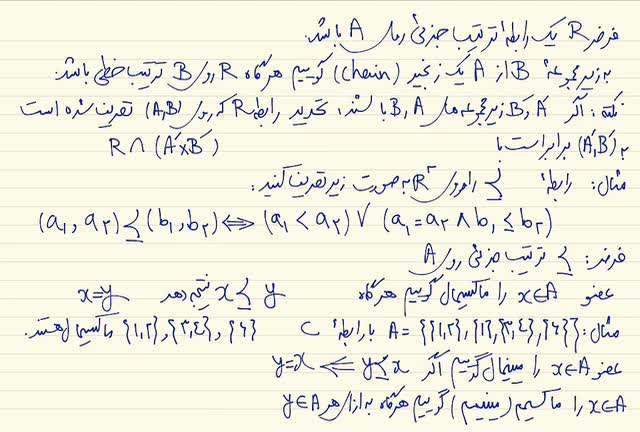 فرض R یک رابطه ترتیب جزئی روی A باشد.
به زیرمجموعه B از A یک زنجیر (chain) گوییم هرگاه R روی B ترتیب خطی باشد.
نکته: اگر A′ و B′ زیرمجموعه های A, B باشند، تحدید رابطه R که روی (A,B) تعریف شده است
به (A′,B′) برابر است با R ∩ (A′×B′)
مثال: رابطه ≼ را روی ℝ² به صورت زیر تعریف کنید:
(a₁, a₂) ≼ (b₁, b₂) ⟺ (a₁ < a₂) ∨ (a₁ = a₂ ∧ b₁ ≤ b₂)
فرض: ≼ ترتیب جزئی روی A
عضو x∈A را ماکسیمال گوییم هرگاه x ≼ y نتیجه دهد x=y
مثال: A = {{1,2},{1},{3,4},{6}} با رابطه ⊂ {1,2},{3,4},{6} ماکسیمال هستند.
عضو x∈A را مینیمال گوییم اگر y ≼ x ⟹ y=x
x∈A را ماکسیمم (مینیمم) گوییم هرگاه به ازای هر y∈A